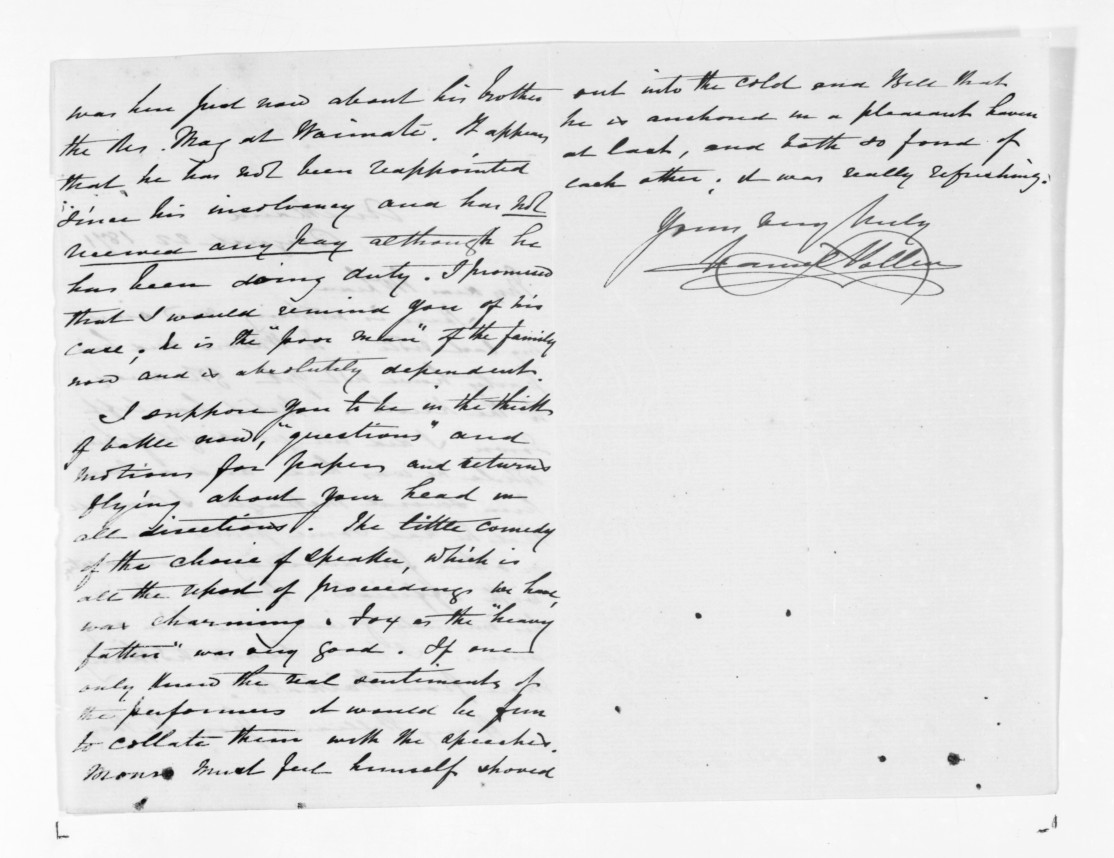 was here just now about his brother
the Res. Mag at Waimate. It appears
that he has not been reappointed
since his insolvency and has not
received any pay although he
has been doing duty. I promised
that I would remind you of his
case; he is the "poor man" of the family
now and is absolutely dependent.
I suppose you to be in the thick
of battle now, "questions" and
motions for papers and returns
flying about your head in
all directions. The little comedy
of the choice of speaker, which is
all the report of proceedings we have,
was charming. Fox as the "heavy
father" was very good. If one
only knew the real sentiments of
the performers it would be fun
to collate them with the speeches.
Monro must feel himself shoved
out into the cold and Bell that
he is anchored in a pleasant haven
at last, and both so fond of
each other; it was really refreshing.
Yours very truly
Daniel Pollen